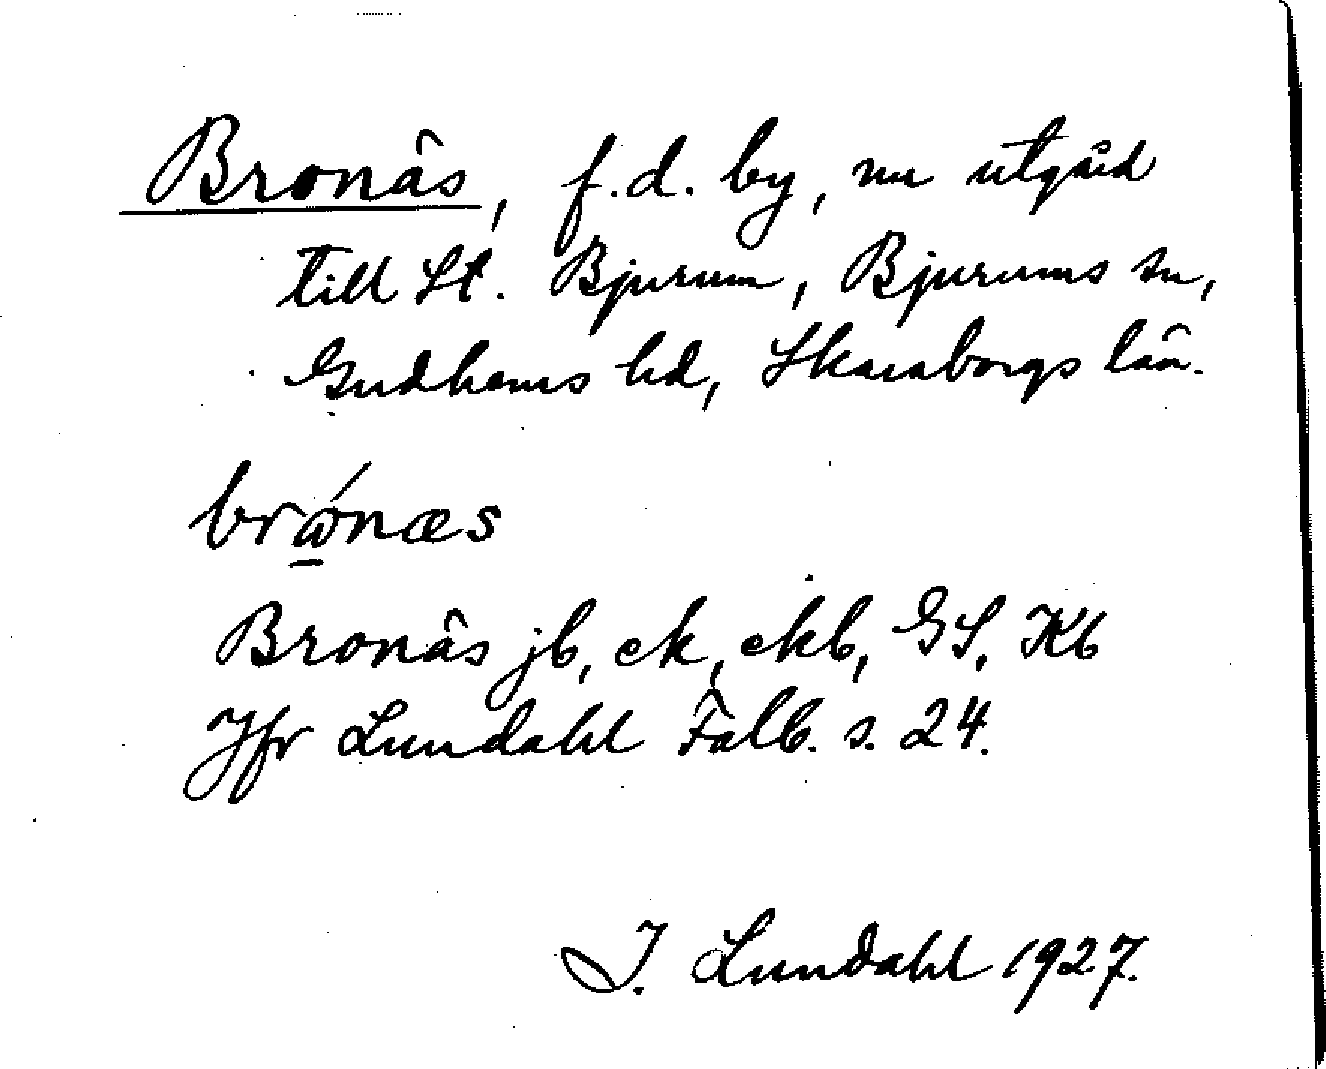 Bronäs, f.d. by, nu utgård
till St. Bjurum, Bjurums sn,
Gudhems hd, Skaraborgs län.
brώ̱næs
Bronäs jb, ek, ekb, GS, Kb
Jfr Lundahl Falb. s. 24.
I. Lundahl 1927.